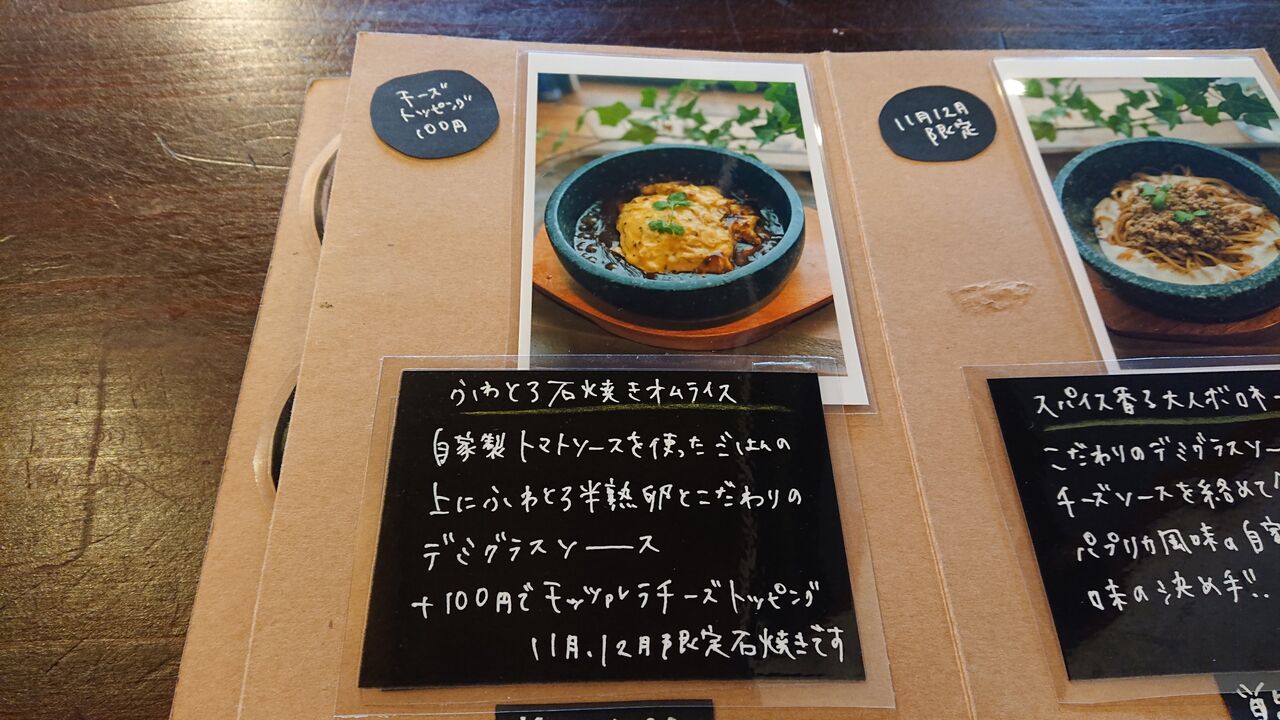 チーズ
トッピング
100円
ふわとろ石焼きオムライス
自家製トマトソースを使ったごはんの
上にふわとろ半熟卵とこだわりの
デミグラスソース
+100円でモッツァレラチーズトッピング
11月、12月限定石焼きです
11月12月
限定
スパイス香る大人ボロネー
こだわりのデミグラスソー
チーズソースを絡めて
パプリカ風味の自家
味の決め手!!